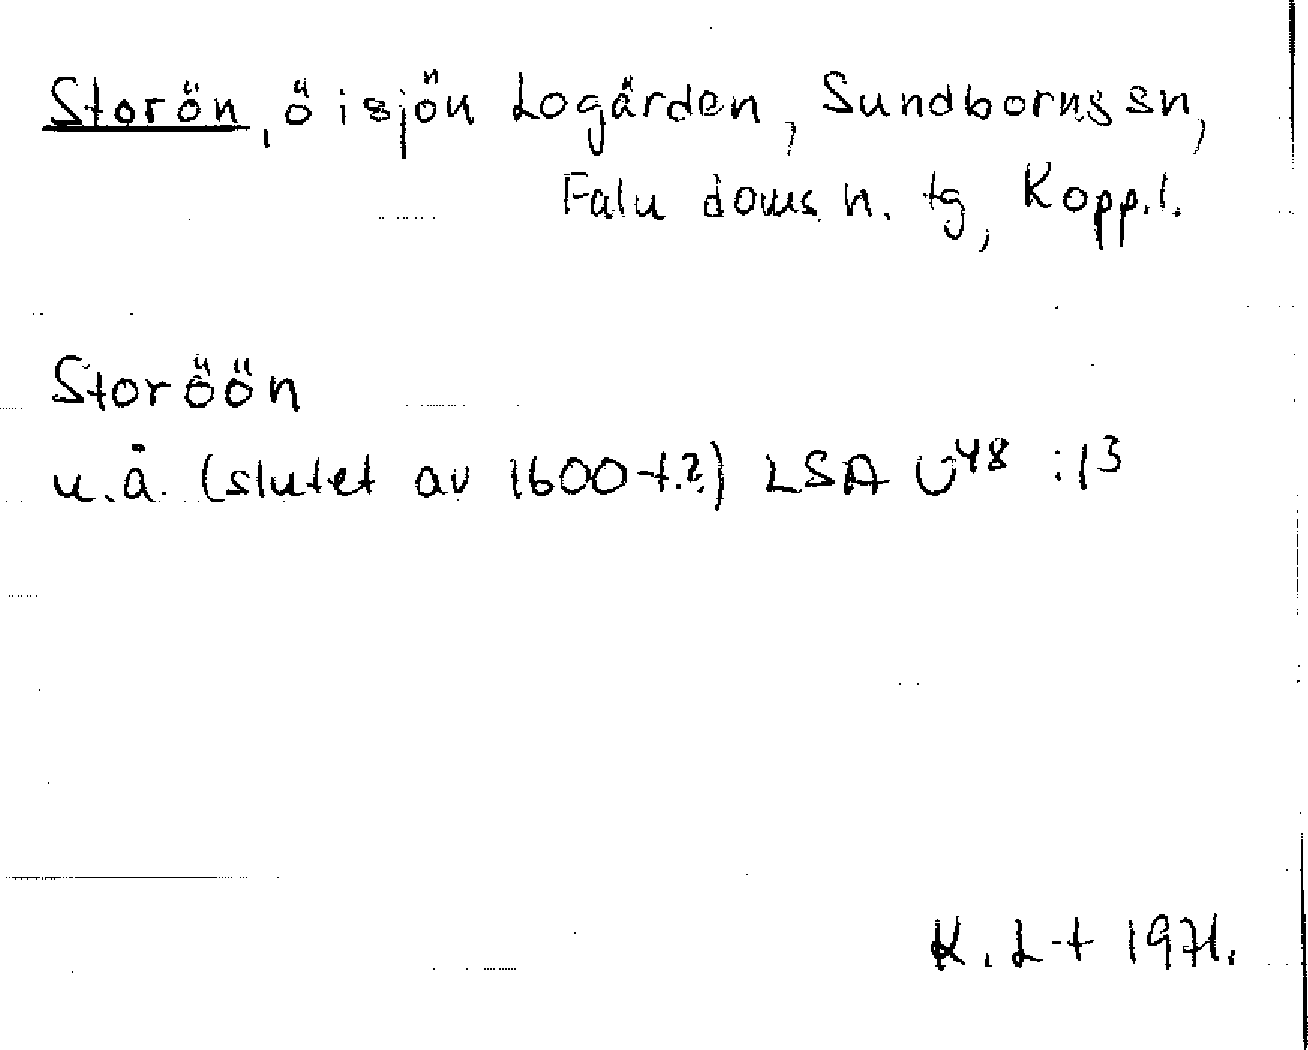 Storön, ö i sjön Logården, Sundborns sn,
Falu doms. n. tg, Kopp.l.
Storöön
u.å. (slutet av 1600-t.?) LSA U48 :13
K. L-t 1971.